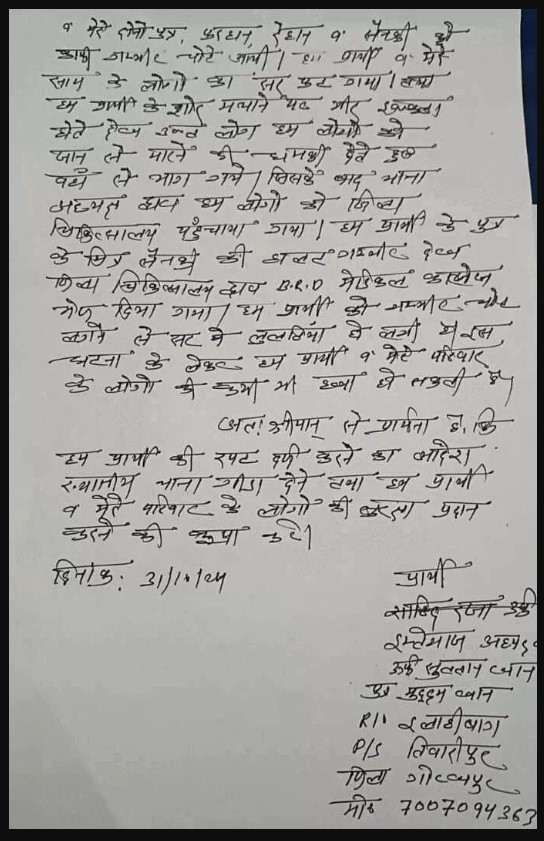 व मेरे दोनो पुत्र, फरहान, रेहान व सैनकी को
काफी गम्भीर चोटे आयी। हम प्रार्थी व मेरे
साथ के लोगों का सर फट गया। तथा
हम प्रार्थी के शोर मचाने पर भीड़ इकट्ठा
होते देख उक्त लोग हम लोगो को
जान से मारने की धमकी देते हुए
वहाँ से भाग गये। जिसके बाद थाना
द्वारा हम लोगो को जिला
चिकित्सालय पहुँचाया गया। हम प्रार्थी के पुत्र
के मित्र सैनकी की हालत गम्भीर देख
जिला चिकित्सालय द्वारा B.R.D मेडिकल कालेज
भेज दिया गया। हम प्रार्थी को गम्भीर चोट
लगने से सर मे लगी है इस
घटना के लेकर हम प्रार्थी व मेरे परिवार
के लोगो की कभी भी हत्या हो सकती है।
अतः श्रीमान् से प्रार्थना है, कि
हम प्रार्थी की रपट दर्ज करने का आदेश
स्थानीय थाना गीडा देने तथा हम प्रार्थी
व मेरे परिवार के लोगों की सुरक्षा प्रदान
करने की कृपा करें।
दिनांक: 31/10/24
प्रार्थी
इम्तेयाज अहमद
उर्फ सुल्तान खान
पुत्र मुद्दन खान
R/० इलाहीबाग
P/S तिवारीपुर
जिला गोरखपुर
मो० 7007094363